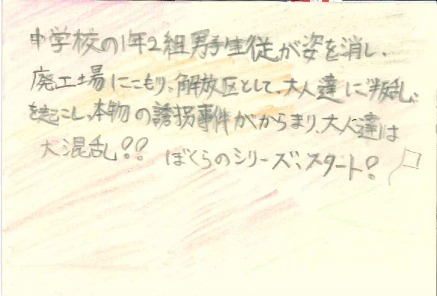 中学校の1年2組男子生徒が姿を消し、
廃工場にこもり、解放区として、大人達に叛乱
を起こし、本物の誘拐事件がからまり、大人達は
大混乱!? ぼくらのシリーズ、スタート!